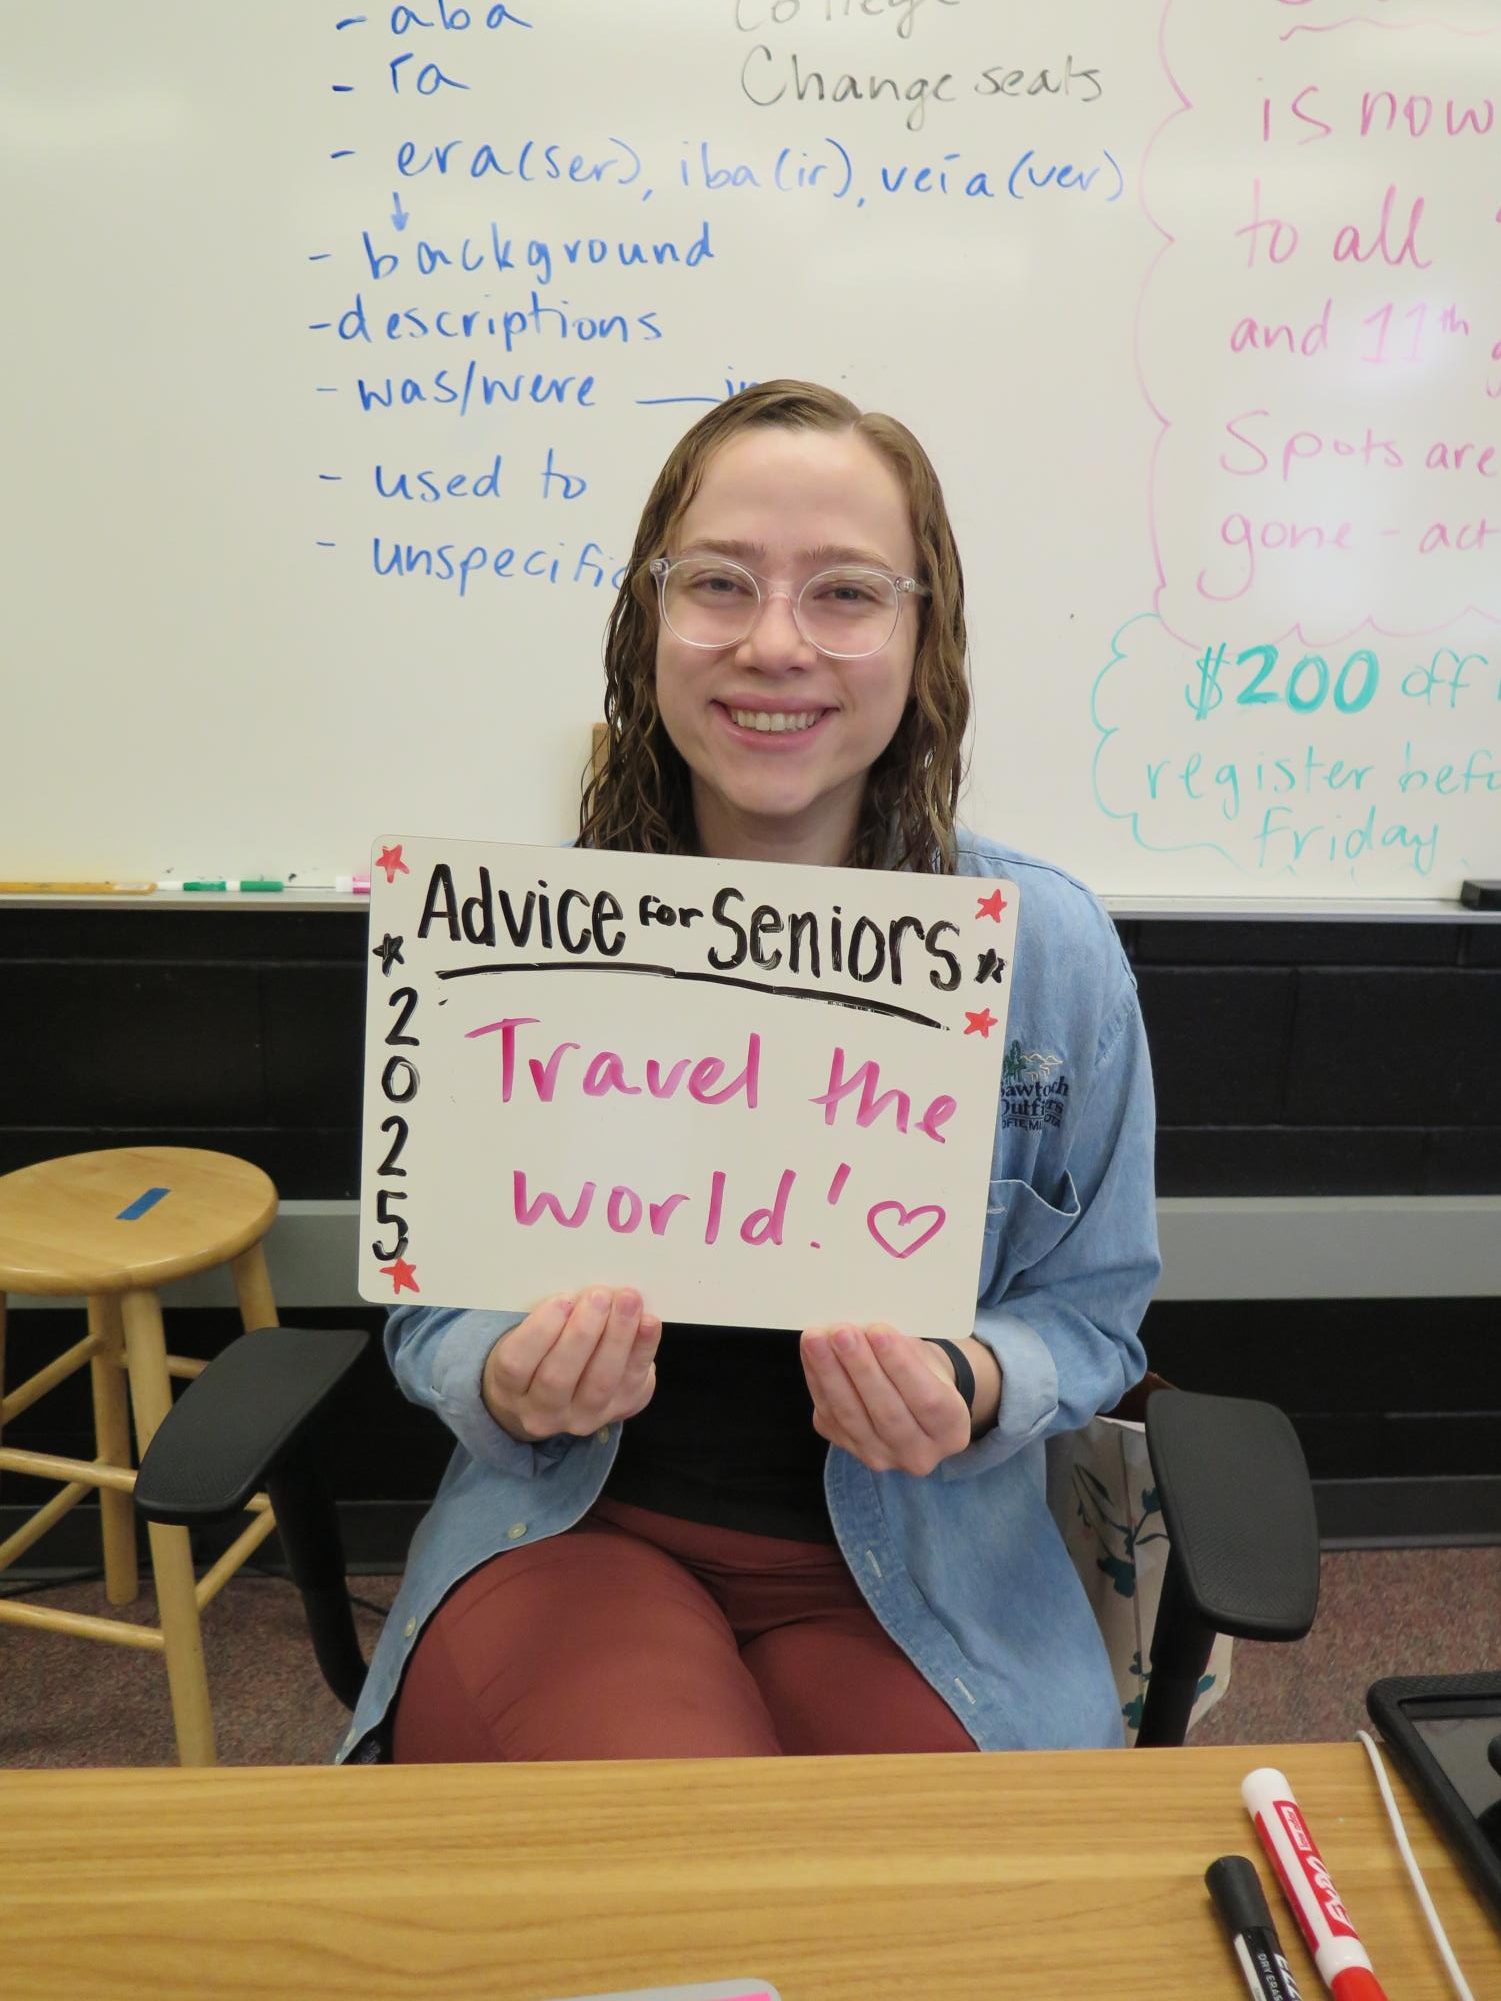 - aba
- ra
- era(ser), iba(ir), veía(ver)
- background
- descriptions
- was/were ___in
- used to
- unspecific
College
Change seats
is now
to all
and 11th
Spots are
gone - act
$200 off
register befo
Friday
Advice for Seniors
2025
Travel the
world!
Outfi
EXPO
DRY ERASE